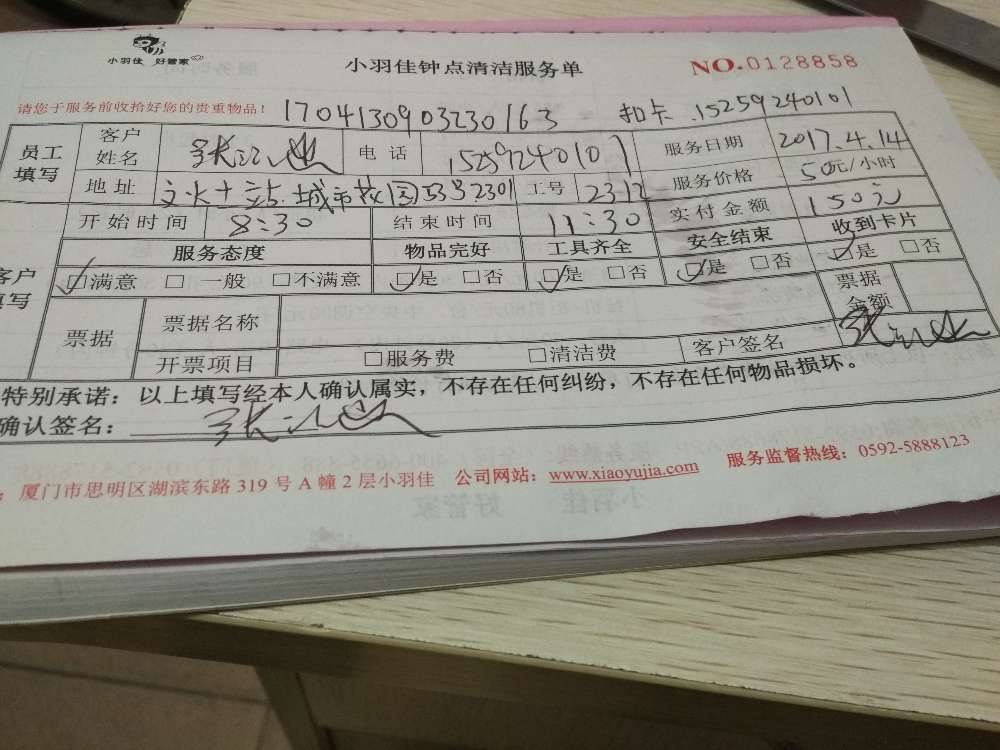 小羽佳 好管家
小羽佳钟点清洁服务单
NO.0128858
请您于服务前收拾好您的贵重物品！
1704130903230163 扣卡 15259240101
员工填写 客户姓名 张 电话 15259240101 服务日期 2017.4.14
地址 城市 53号2301 工号 2312 服务价格 50元/小时
开始时间 8:30 结束时间 11:30 实付金额 150元
客户填写 服务态度 物品完好 工具齐全 安全结束 收到卡片
☑满意 □一般 □不满意 ☑是 □否 ☑是 □否 ☑是 □否 ☑是 □否
票据 票据名称 票据金额
开票项目 □服务费 □清洁费 客户签名 张
特别承诺：以上填写经本人确认属实，不存在任何纠纷，不存在任何物品损坏。
确认签名： 张
：厦门市思明区湖滨东路 319 号 A 幢 2 层小羽佳 公司网站：www.xiaoyujia.com 服务监督热线：0592-5888123